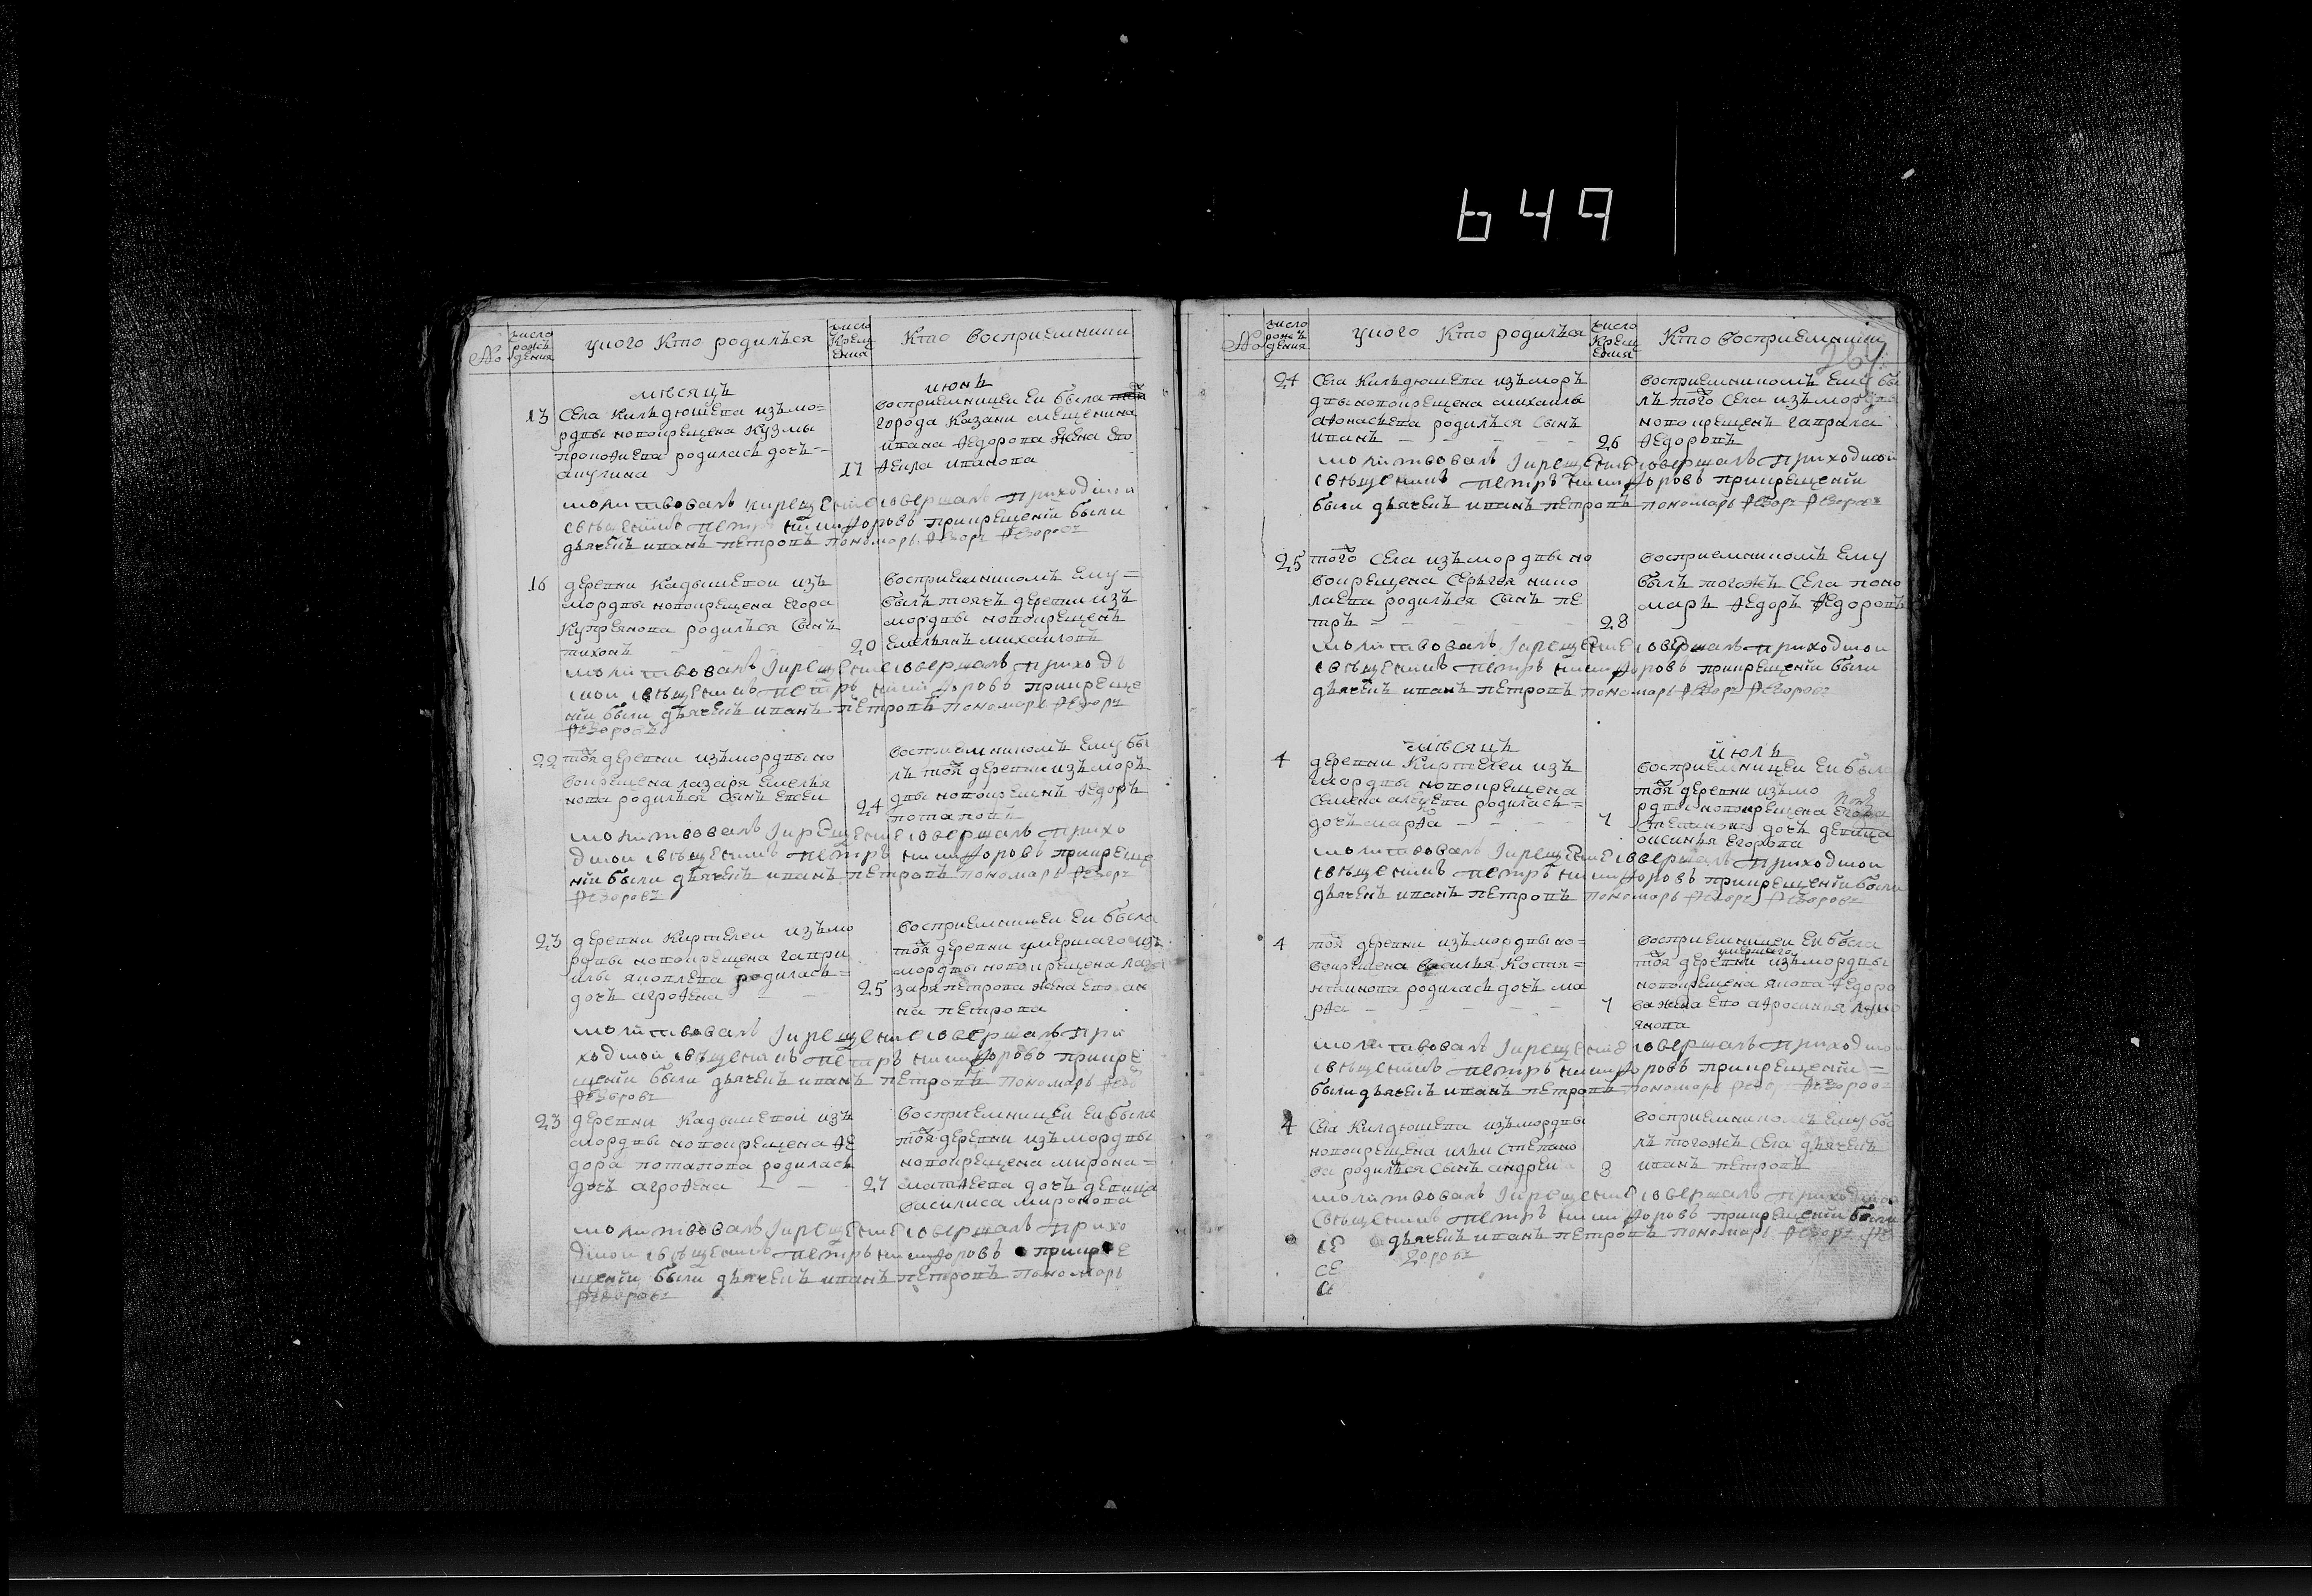 649
№
число рождѣ дения
у кого кто родилъся
число крещ ения
кто восприемники
мѣсяцъ
июнь
13 села кильдюшева изъ мо=
рдвы новокрещена кузмы
прокофиева родиласъ дочъ-
акулина
17
восприемницеи еи была
города казани мещенина
ивана федорова жена ево
фекла иванова
молитвовалъ и крещение совершалъ приходскои
священникъ петръ никифоровъ при крещении были
дьячекъ иванъ петровъ пономарь федоръ федоровъ
16 деревни кадышевои изъ
мордвы новокрещена егора
купреянова родилъся сынъ
тихонъ
20
восприемникомъ ему=
былъ тояжъ деревни изъ
мордвы новокрещенъ
емельянъ михаиловъ
молитвовалъ и крещение совершалъ приход
скои священникъ петръ никифоровъ при креще
нии были дьячекъ иванъ петровъ пономарь федоръ
федоровъ
22 тояжъ деревни изъ мордвы но
вокрещена лазаря емелья
нова родилъся сынъ евсеи
24
восприемникомъ ему бы
лъ тояжъ деревни изъ моръ
двы новокрещенъ федоръ
потаповъ
молитвовалъ и крещение совершалъ прихо
дскои священникъ петръ никифоровъ при креще
нии были дьячекъ иванъ петровъ пономарь федоръ
федоровъ
23 деревни киртелеи изъ мо
рдвы новокрещена гаври
илы яковлева родиласъ=
дочъ агрофена
25
восприемницеи еи была
тояжъ деревни умершаго изъ
мордвы новокрещена ла
заря петрова жена ево ан
на петрова
молитвовалъ и крещение совершалъ при
ходскои священникъ петръ никифоровъ при кре
щении были дьячекъ иванъ петровъ пономарь
федоровъ
23 деревни кадышевои изъ
мордвы новокрещена фе
дора потапова родиласъ
дочъ агрофена
27
восприемницеи еи была
тояжъ деревни изъ мордвы
новокрещена мирона=
матфеева дочъ девица
василиса миронова
молитвовалъ и крещение совершалъ прихо
дскои священникъ петръ никифоровъ при кре
щении были дьячекъ иванъ петровъ пономарь
федоровъ
№
число рождѣ дения
у кого кто родилъся
число крещ ения
кто восприемники
24 села кильдюшева изъ моръ
двы новокрещена михаилы
афонасьева родилъся сынъ
иванъ
26
восприемникомъ ему бы
лъ тогожъ села изъ мордвы
новокрещенъ гаврила
федоровъ
молитвовалъ и крещение совершалъ приходскои
священникъ петръ никифоровъ при крещении
были дьячекъ иванъ петровъ пономарь федоръ федоровъ
25 тогожъ села изъ мордвы но
вокрещена серьгея нико
лаева родилъся сынъ пе
тръ
28
восприемникомъ ему
былъ тогожъ села поно
марь федоръ федоровъ
молитвовалъ и крещение совершалъ приходскои
священникъ петръ никифоровъ при крещении были
дьячекъ иванъ петровъ пономарь федоръ федоровъ
мѣсяцъ
июль
4 деревни киртелеи изъ
мордвы новокрещена
семена алеѯева родиласъ=
дочъ марфа
7
восприемницеи еи была
тояжъ деревни изъ мо
рдвы новокрещена егора
степанова дочъ девица
оксинья егорова
молитвовалъ и крещение совершалъ приходскои
священникъ петръ никифоровъ при крещении были
дьячекъ иванъ петровъ пономарь федоръ федоровъ
4 тояжъ деревни изъ мордвы но=
вокрещена василья костя=
нтинова родиласъ дочъ ма
рфа
7
восприемницеи еи была
умершаго
тояжъ деревни изъ мордвы
новокрещена якова федоро
ва жена ево афросинья
янова
молитвовалъ и крещение совершалъ приходскои
священникъ петръ никифоровъ при крещении=
были дьячекъ иванъ петровъ пономарь федоръ федоровъ
4 села килдюшева изъ мордвы
новокрещена ильи степано
ва родилъся сынъ андреи
8
восприемникомъ ему бы
лъ тогожъ села дьячекъ
иванъ петровъ
молитвовалъ и крещение совершалъ приходскои
священникъ петръ никифоровъ при крещении были
се дьячекъ иванъ петровъ пономарь федоръ фе
доровъ
се
се